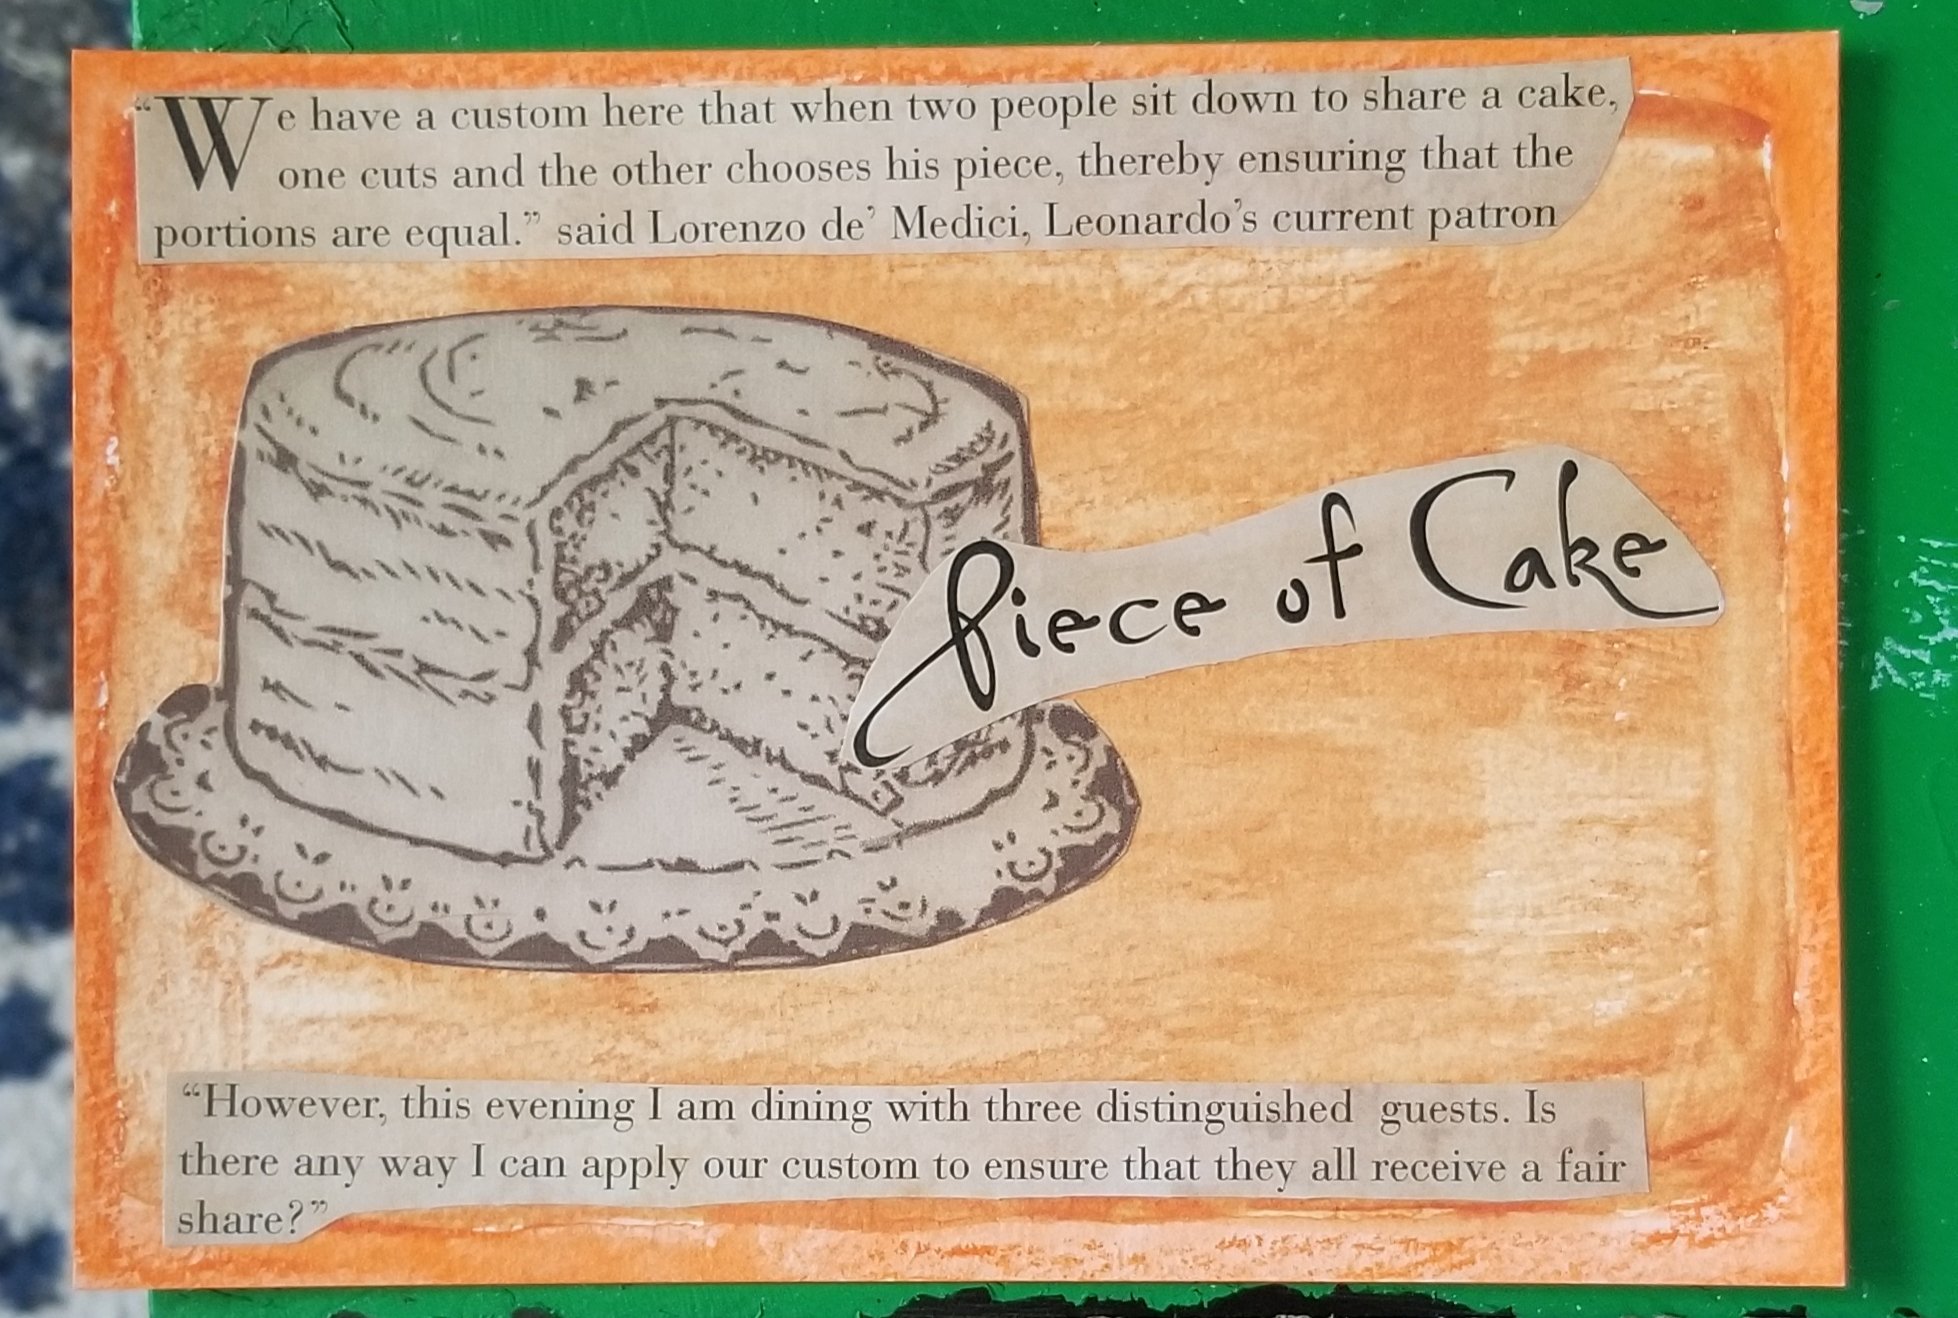 “We have a custom here that when two people sit down to share a cake,
one cuts and the other chooses his piece, thereby ensuring that the
portions are equal.” said Lorenzo de’ Medici, Leonardo’s current patron
Piece of Cake
“However, this evening I am dining with three distinguished guests. Is
there any way I can apply our custom to ensure that they all receive a fair
share?”